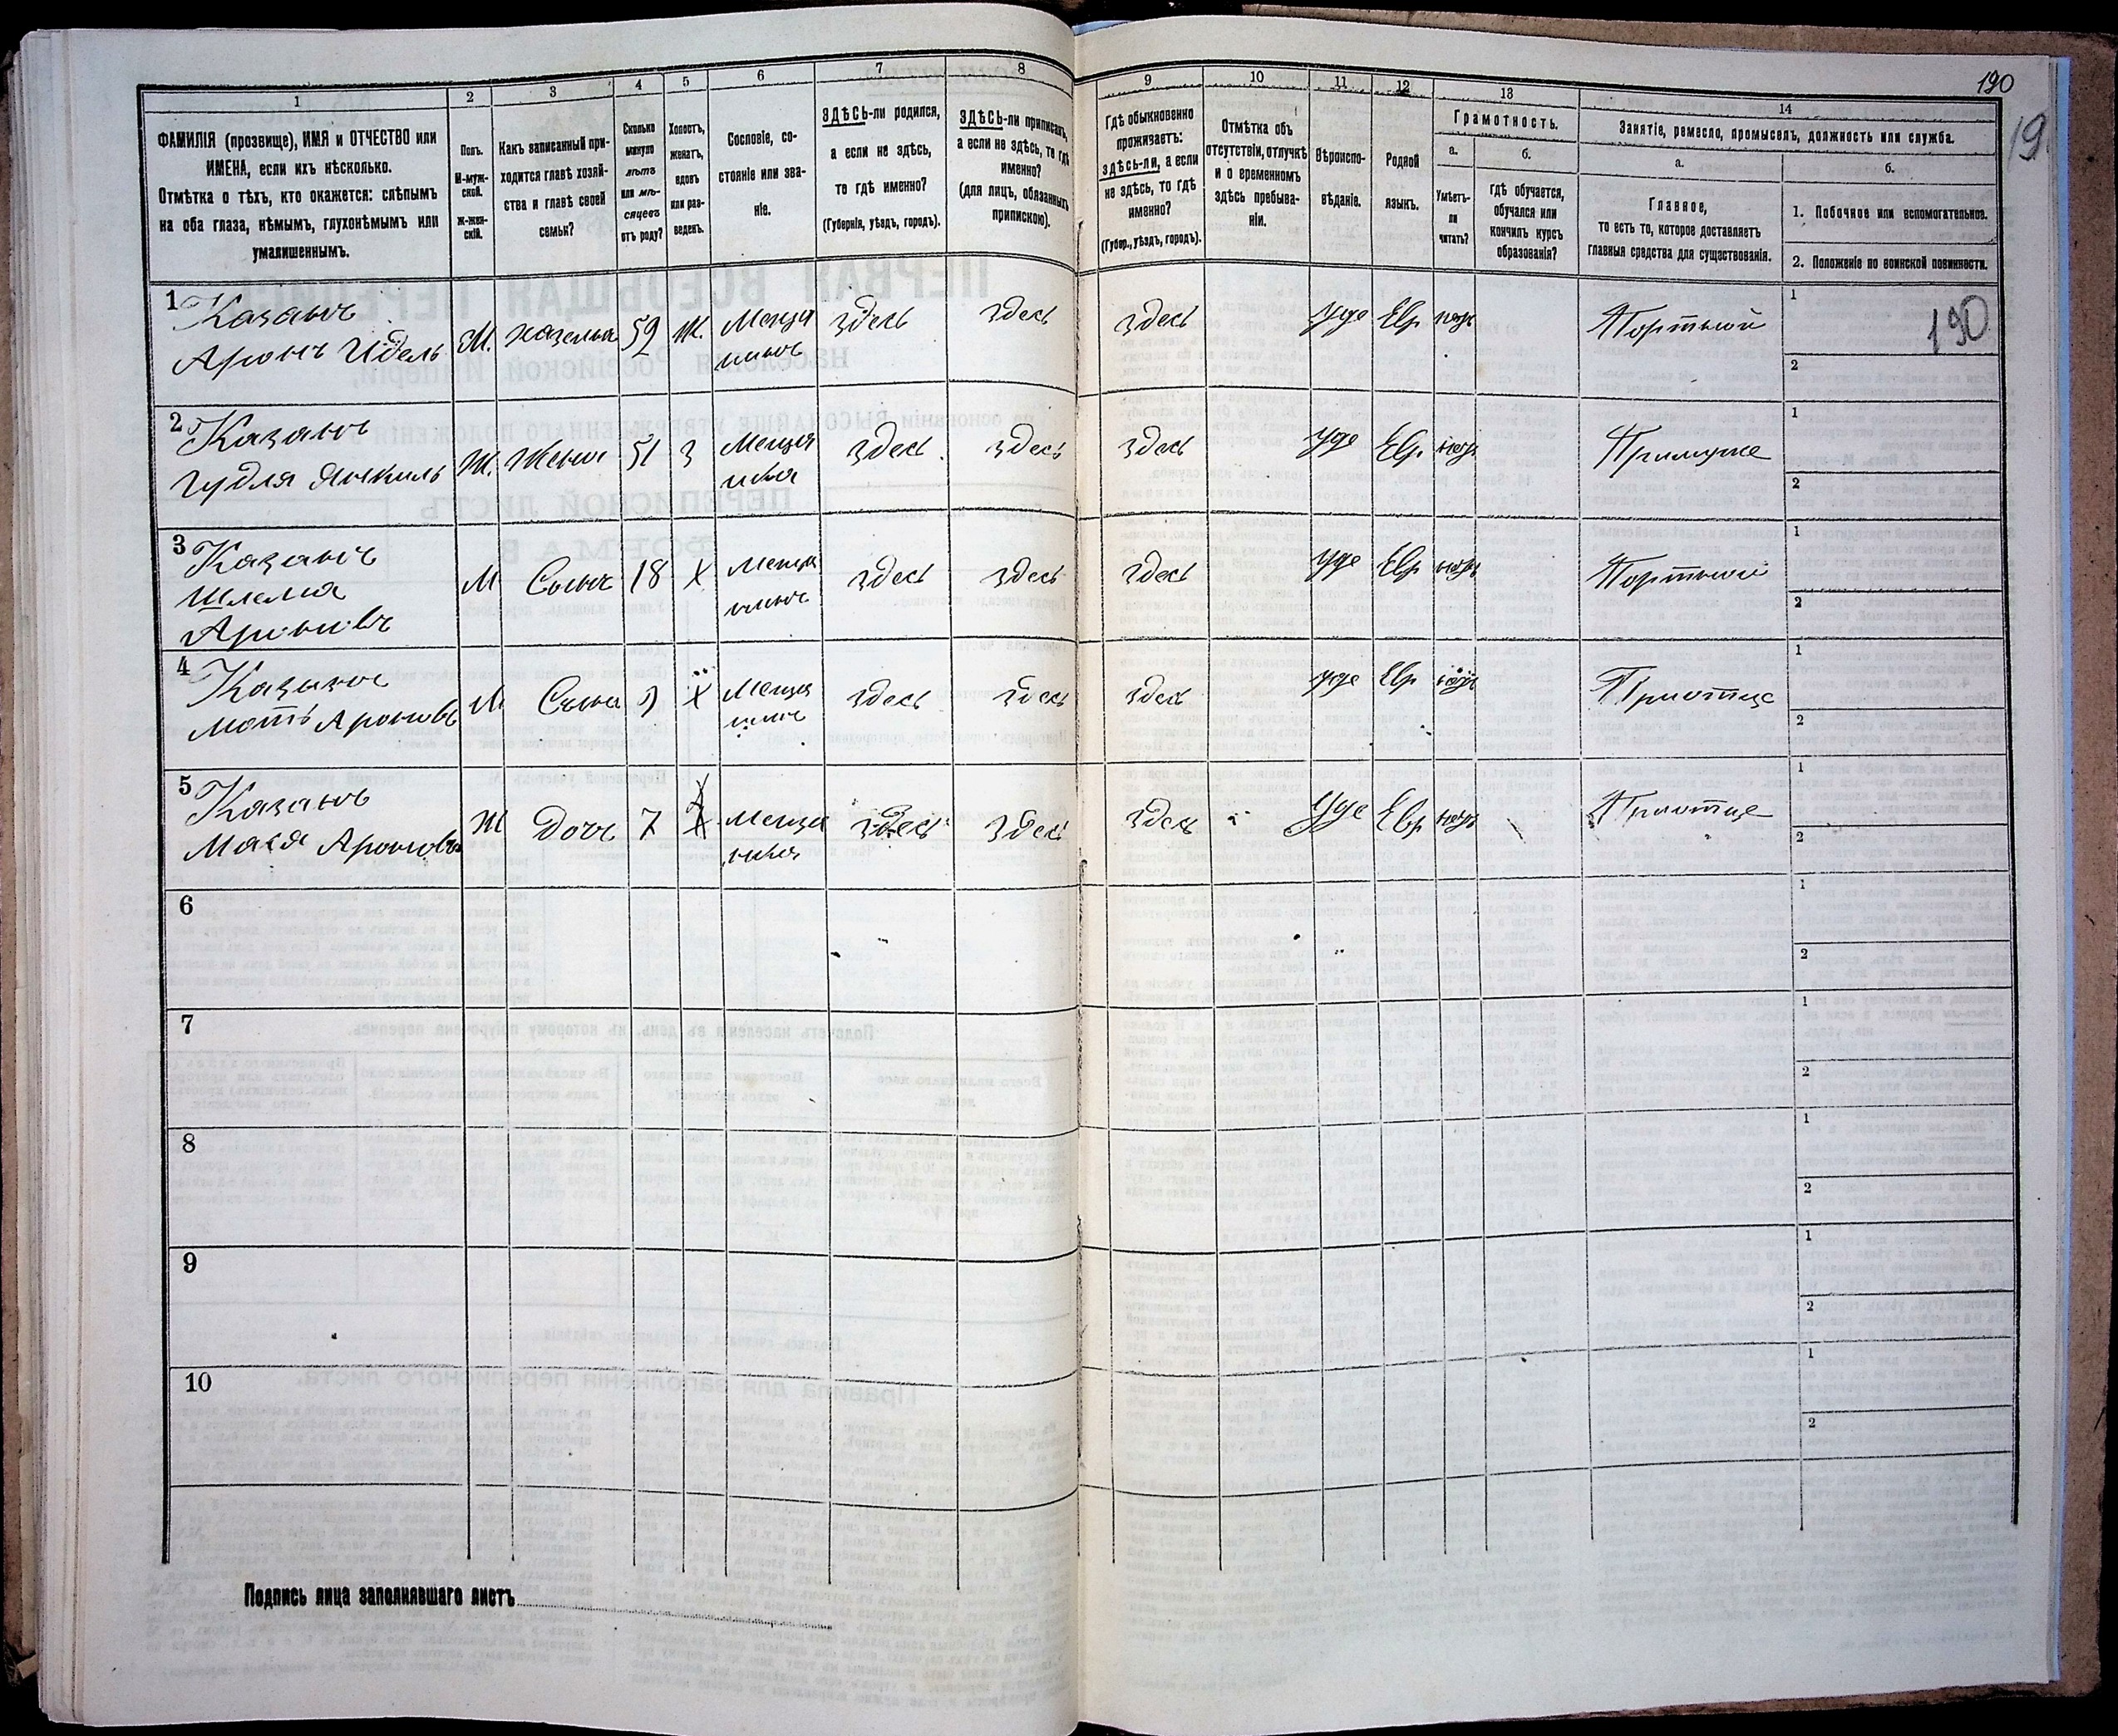 190
19
1
2
3
4
5
6
7
8
9
10
11
12
13
14
ФАМИЛІЯ (прозвище), ИМЯ и ОТЧЕСТВО или
ИМЕНА, если ихъ нѣсколько.
Отмѣтка о тѣхъ, кто окажется: слѣпымъ
на оба глаза, нѣмымъ, глухонѣмымъ или
умалишеннымъ.
Полъ.
М-муж-
ской.
Ж-жен-
скій.
Какъ записанный при-
ходится главѣ хозяй-
ства и главѣ своей
семьи?
Сколько
минуло
лѣтъ
или мѣ-
сяцевъ
отъ роду?
Холостъ,
женатъ,
вдовъ
или раз-
веденъ.
Сословіе, со-
стояніе или зва-
ніе.
ЗДѢСЬ-ли родился,
а если не здѣсь,
то гдѣ именно?
(Губернія, уѣздъ, городъ).
ЗДѢСЬ-ли приписанъ,
а если не здѣсь, то гдѣ
именно?
(для лицъ, обязанныхъ
припискою).
Гдѣ обыкновенно
проживаетъ:
здѣсь-ли, а если
не здѣсь, то гдѣ
именно?
(Губер., уѣздъ, городъ).
Отмѣтка объ
отсутствіи, отлучкѣ
и о временномъ
здѣсь пребыва-
ніи.
Вѣроиспо-
вѣданіе.
Родной
языкъ.
Грамотность.
а.
Умѣетъ-
ли
читать?
б.
гдѣ обучается,
обучался или
кончилъ курсъ
образованія?
Занятіе, ремесло, промыселъ, должность или служба.
а.
Главное,
то есть то, которое доставляетъ
главныя средства для существованія.
б.
1. Побочное или вспомогательное.
2. Положеніе по воинской повинности.
1 Казанъ
Аронъ Идель М. 59 Ж. здесь здесь здесь Іуде Евр Портной 1 190
2
2 Казанъ
Ж. Жена 51 З здесь здесь здесь Іуде Евр 1
2
3 Казанъ
Шлема
Ароновъ М Сынъ 18 Х здесь здесь здесь Іуде Евр Портной 1
2
4
Ароновъ М Сынъ 9 Х здесь здесь здесь Іуде Евр При отце 1
2
5 Казанъ
Ж Дочь 7 Х здесь здесь здесь Іуде Евр При отце 1
2
6 1
2
7 1
2
8 1
2
9 1
2
10 1
2
Подпись лица заполнявшаго листъ